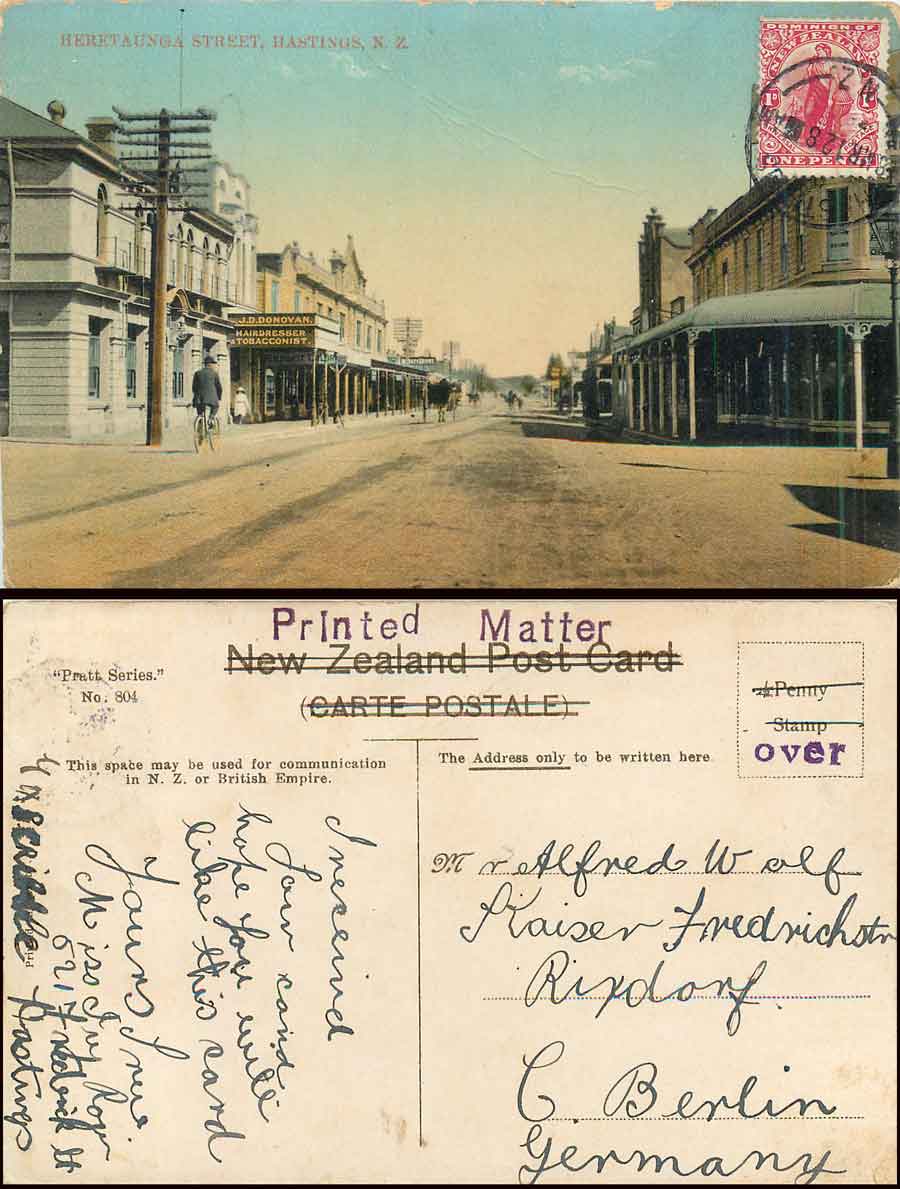 HERETAUNGA STREET, HASTINGS, N. Z.
DOMINION OF
NEW ZEALAND
1D 1D
POSTAGE
ONE PENNY
N.Z.
28
J.D. DONOVAN.
HAIRDRESSER
& TOBACCONIST.
Printed Matter
New Zealand Post Card
(CARTE POSTALE)
"Pratt Series."
No. 804
Penny
Stamp
over
This space may be used for communication
in N. Z. or British Empire.
The Address only to be written here
I received
Your card
hope you will
like this card
Yours
Miss Ivy
Hastings
Mr Alfred Wolf
Kaiser Fredrichstr
Rixdorf
C. Berlin
Germany